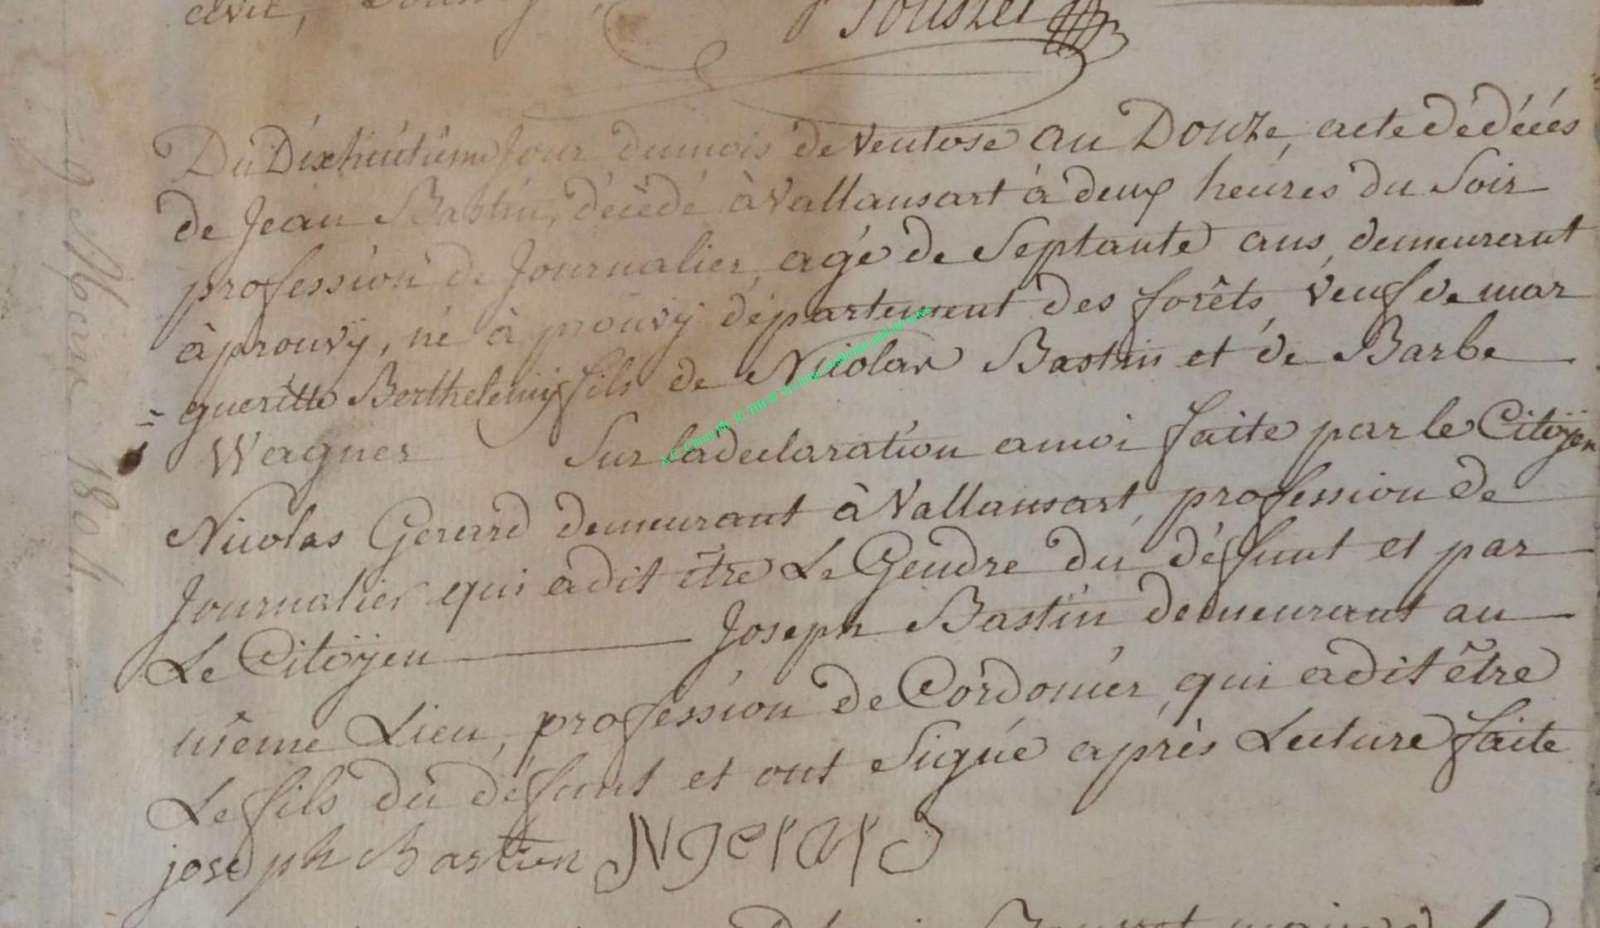 Du Dixhuitième Jour du mois de Ventose an Douze, acte dédécés
de Jean Bastin, décédé à Vallansart à deux heures du Soir
profession de Journalier, agé de Septante ans, demeurant
à prouvÿ, né à prouvÿ département des forêts, veuf de mar
gueritte Berthelemij fils de Nicolas Bastin et de Barbe
Wagner Sur la declaration a moi faite par le Citoÿen
Nicolas Gerard demeurant à Vallansart, profession de
Journalier qui a dit être Le Gendre du défunt et par
Le Citoÿen Joseph Bastin demeurant au
même Lieu, profession de Cordonier, qui a dit être
Le fils du défunt et ont Signé après Lecture faite
joseph Bastien N gerard
9 Mars 1804